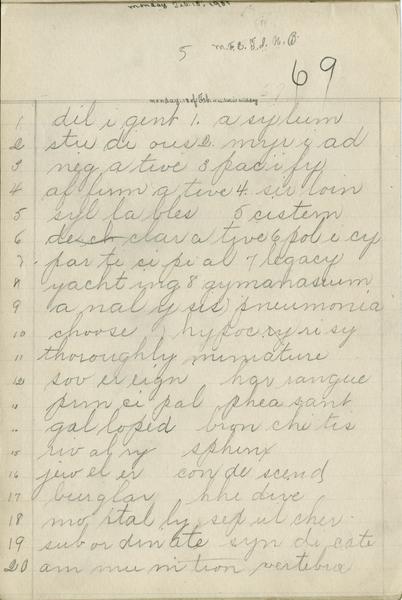 Monday Feb 18, 1901
5 M. E. F. S. N. B.
69
1 dil i gent 1. a sy lum
2 stu di ous 2. myr i ad
3 neg a tive 3 pac i fy
4 af firm a tive 4. sir loin
5 syl la bles 5 cistern
6 de clar a tive 6 pol i cy
7 par ti cip i al 7 legacy
8 yacht ing 8 gymanasium
9 a nal y sis pneumonia
10 choose hypocryrisy
11 thoroughly miniature
12 sov er eign har rangue
" prin ci pal phea sant
" gal loped bron chi tis
15 riv al ry sphinx
16 jew el er con de scend
17 burglar khe dive
18 mo stal ly sep ul cher
19 sub or din ate syn di cate
20 am mu ni tion vertebra